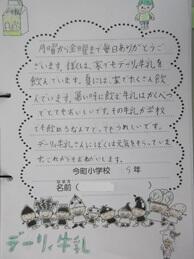 月曜から金曜まで毎日ありがとうご
ざいます。ぼくは、家でもデーリィ牛乳を
飲んでいます。夏には、家でたくさん飲
んでいます。暑い時に飲む牛乳はかくべつ
でとてもおいしいです。その牛乳が学校
でも飲めるなんてとってもうれしいです。
デーリィ牛乳さんにぼくは元気をもらっていま
す。これからもおねがいします。
今町小学校 5年
名前(
デーリィ牛乳